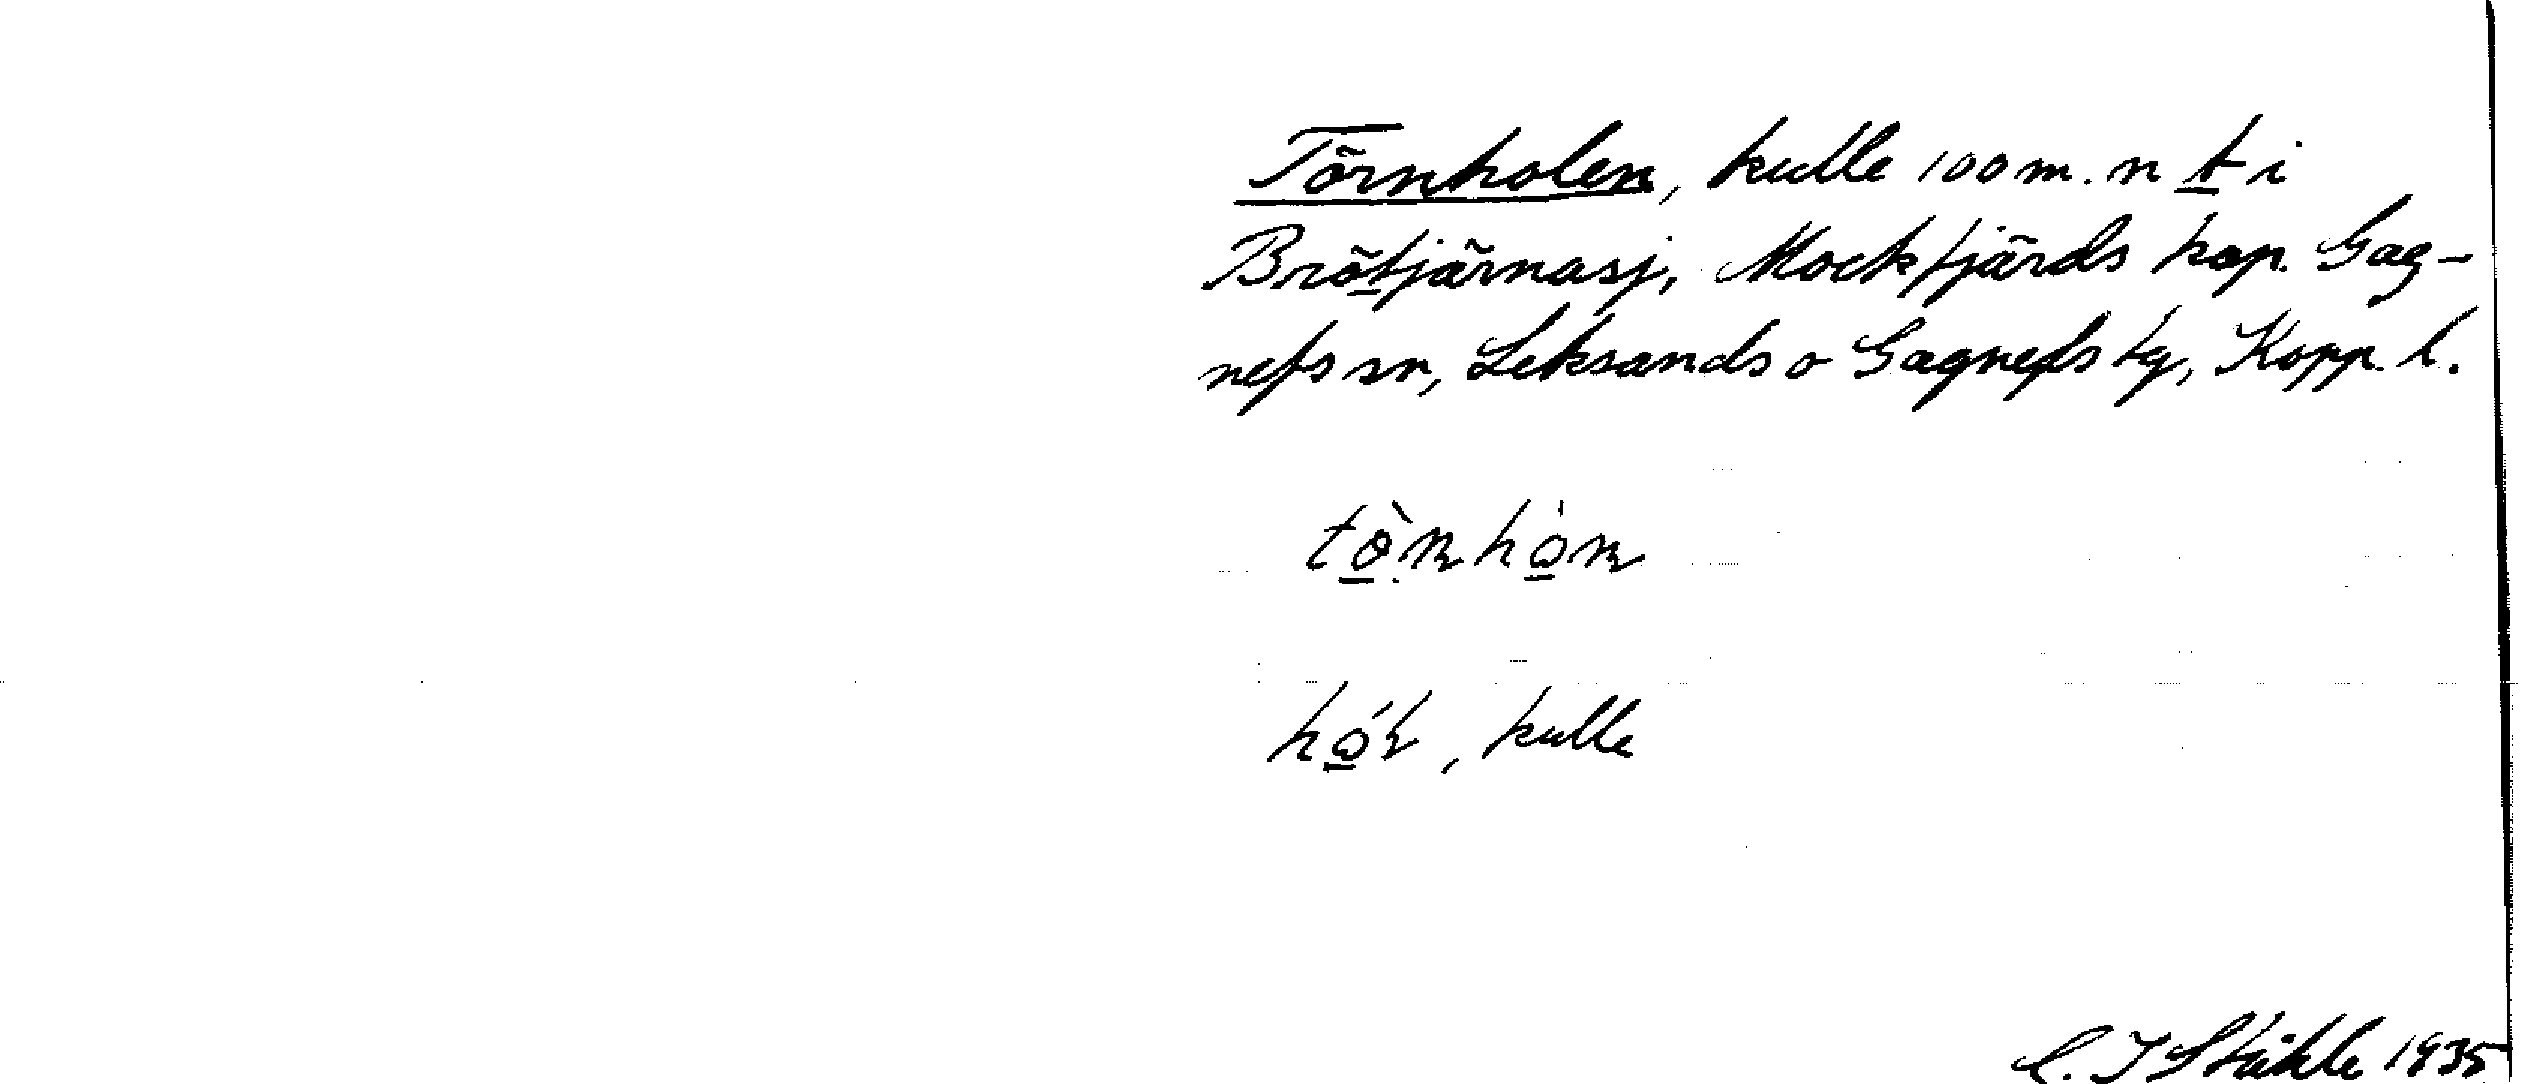 Törnholen, kulle 100 m. n t i
Brötjärnasj, Mockfjärds kap. Gag-
nefs sn, Leksands o Gagnefs tg, Kopp. l.
tò̱n hò̱n
hó̱l, kulle
C. I Ståhle 1935